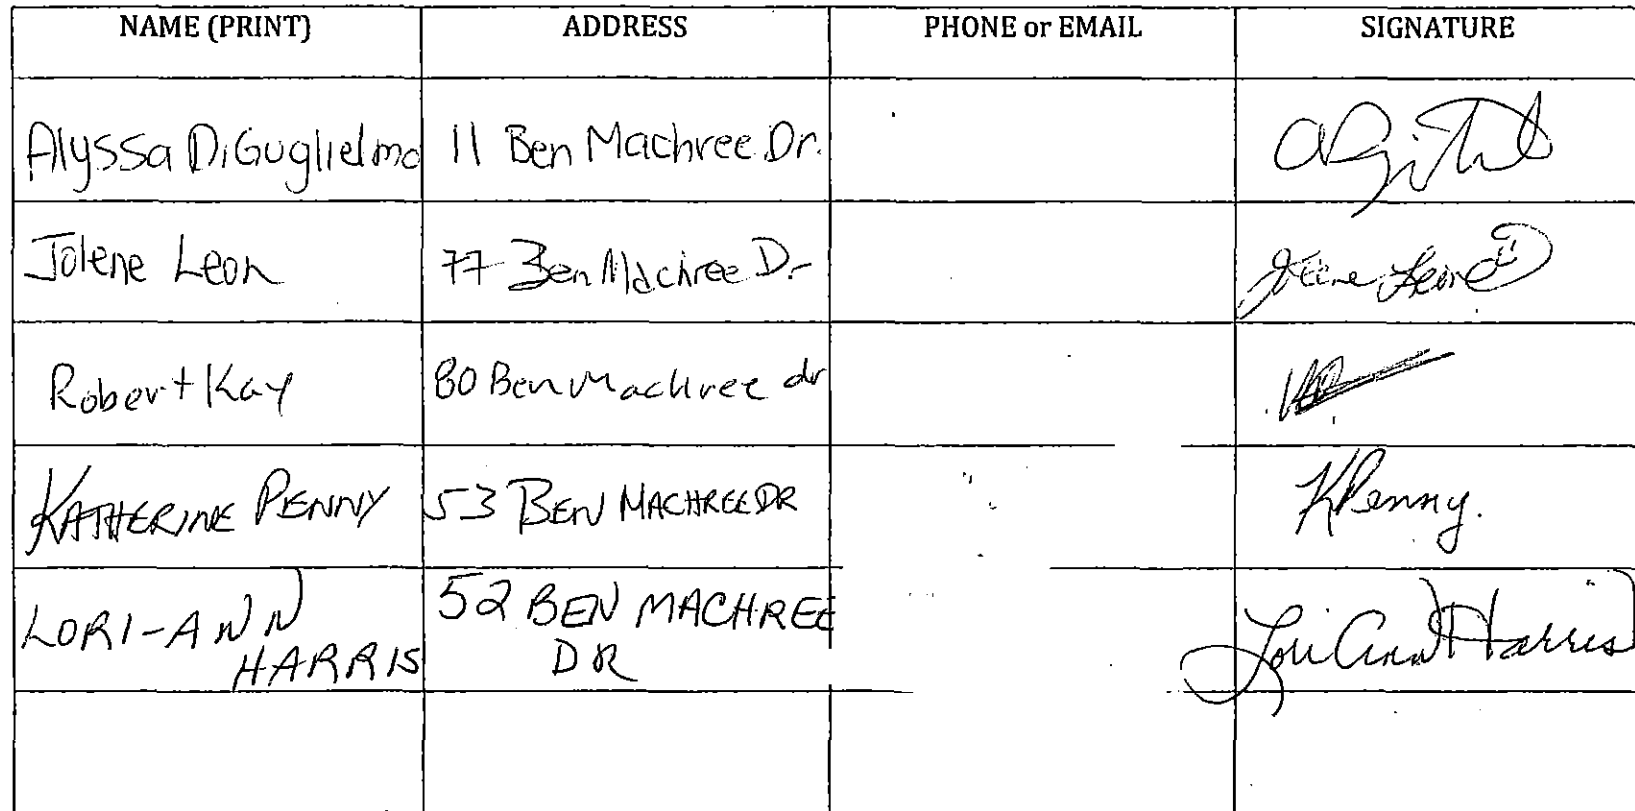 NAME (PRINT) ADDRESS PHONE or EMAIL SIGNATURE
Alyssa DiGuglielmo 11 Ben Machree Dr.
Jolene Leon 77 Ben Machree Dr
Robert Kay 80 Ben Machree dr
KATHERINE PENNY 53 BEN MACHREE DR KPenny.
LORI-ANN HARRIS 52 BEN MACHREE DR Lori Ann Harris